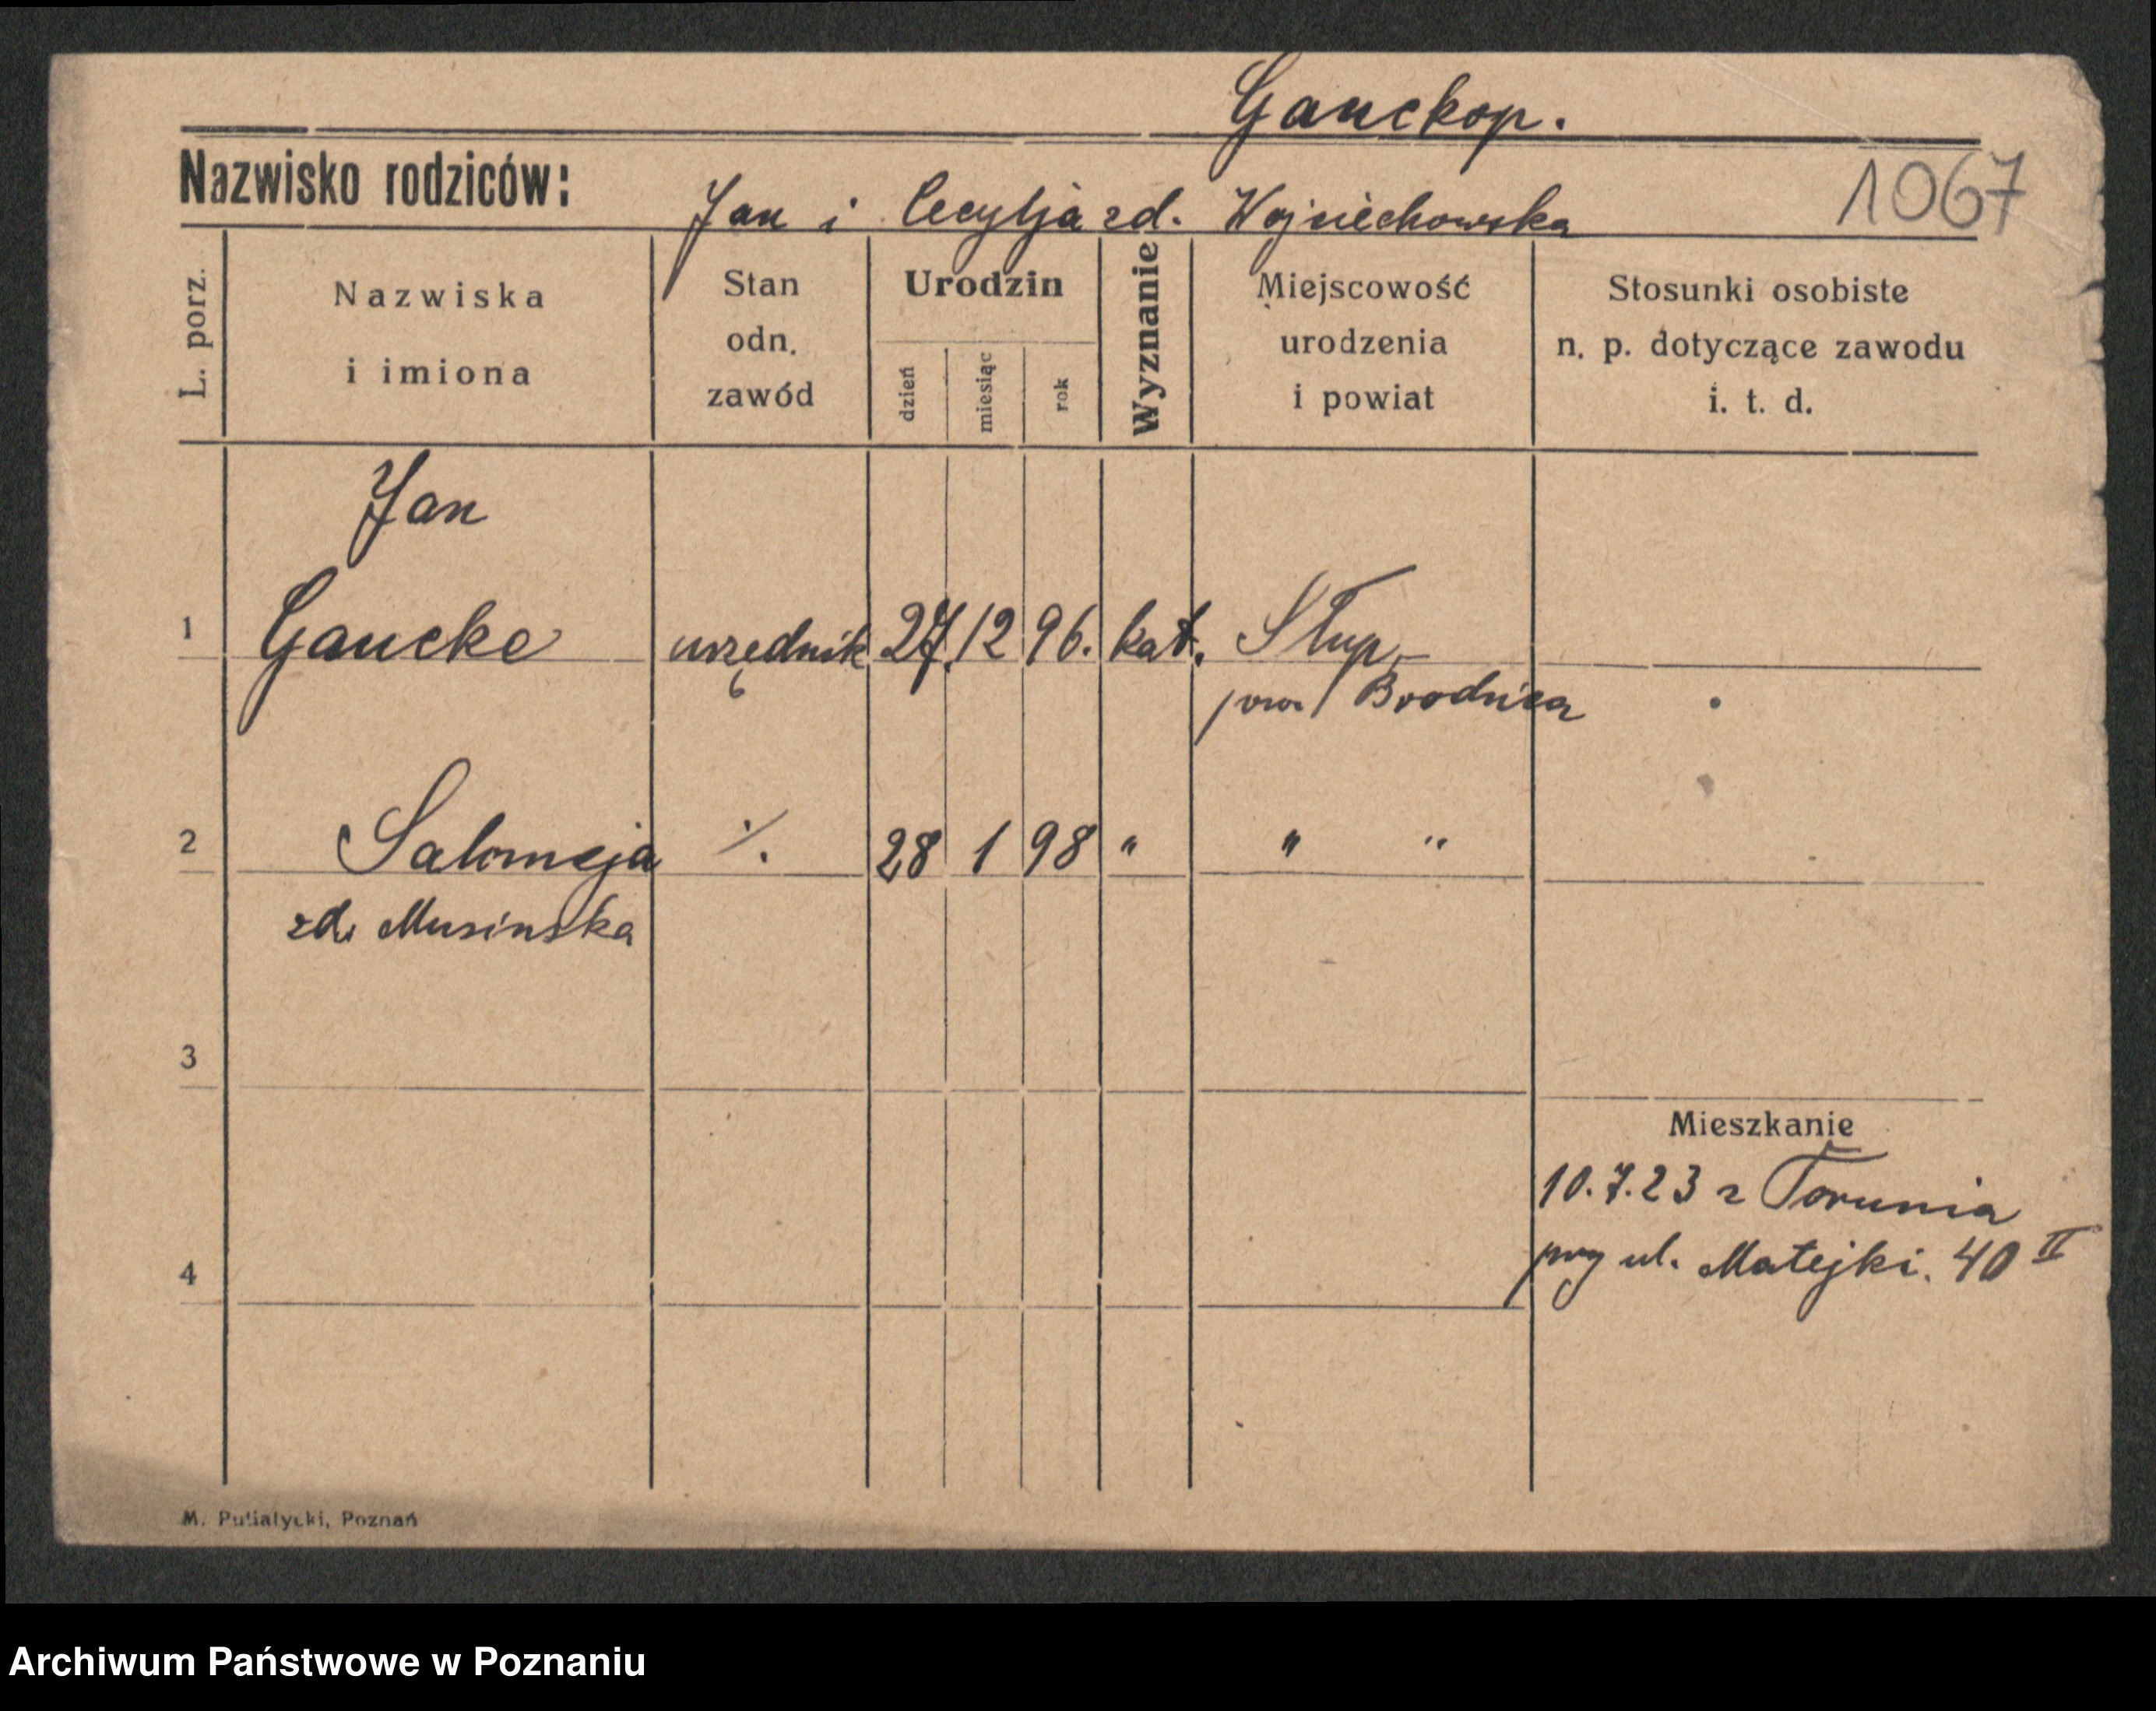 Ganckop.
Nazwisko rodziców:
Jan i Cecylja zd. Wojciechowska
1067
L. porz.
Nazwiska
i imiona
Stan
odn.
zawód
Urodzin
dzień
miesiąc
rok
Wyznanie
Miejscowość
urodzenia
i powiat
Stosunki osobiste
n. p. dotyczące zawodu
i. t. d.
Jan
1 Gancke urzędnik 27. 12 96. kat. Słup
pow. Brodnica
2 Salomeja ·/. 28 1 98 " " "
zd. Musinska
3
Mieszkanie
10.7.23 z Torunia
przy ul. Matejki. 40 II
4
M. Putiatycki, Poznań
Archiwum Państwowe w Poznaniu